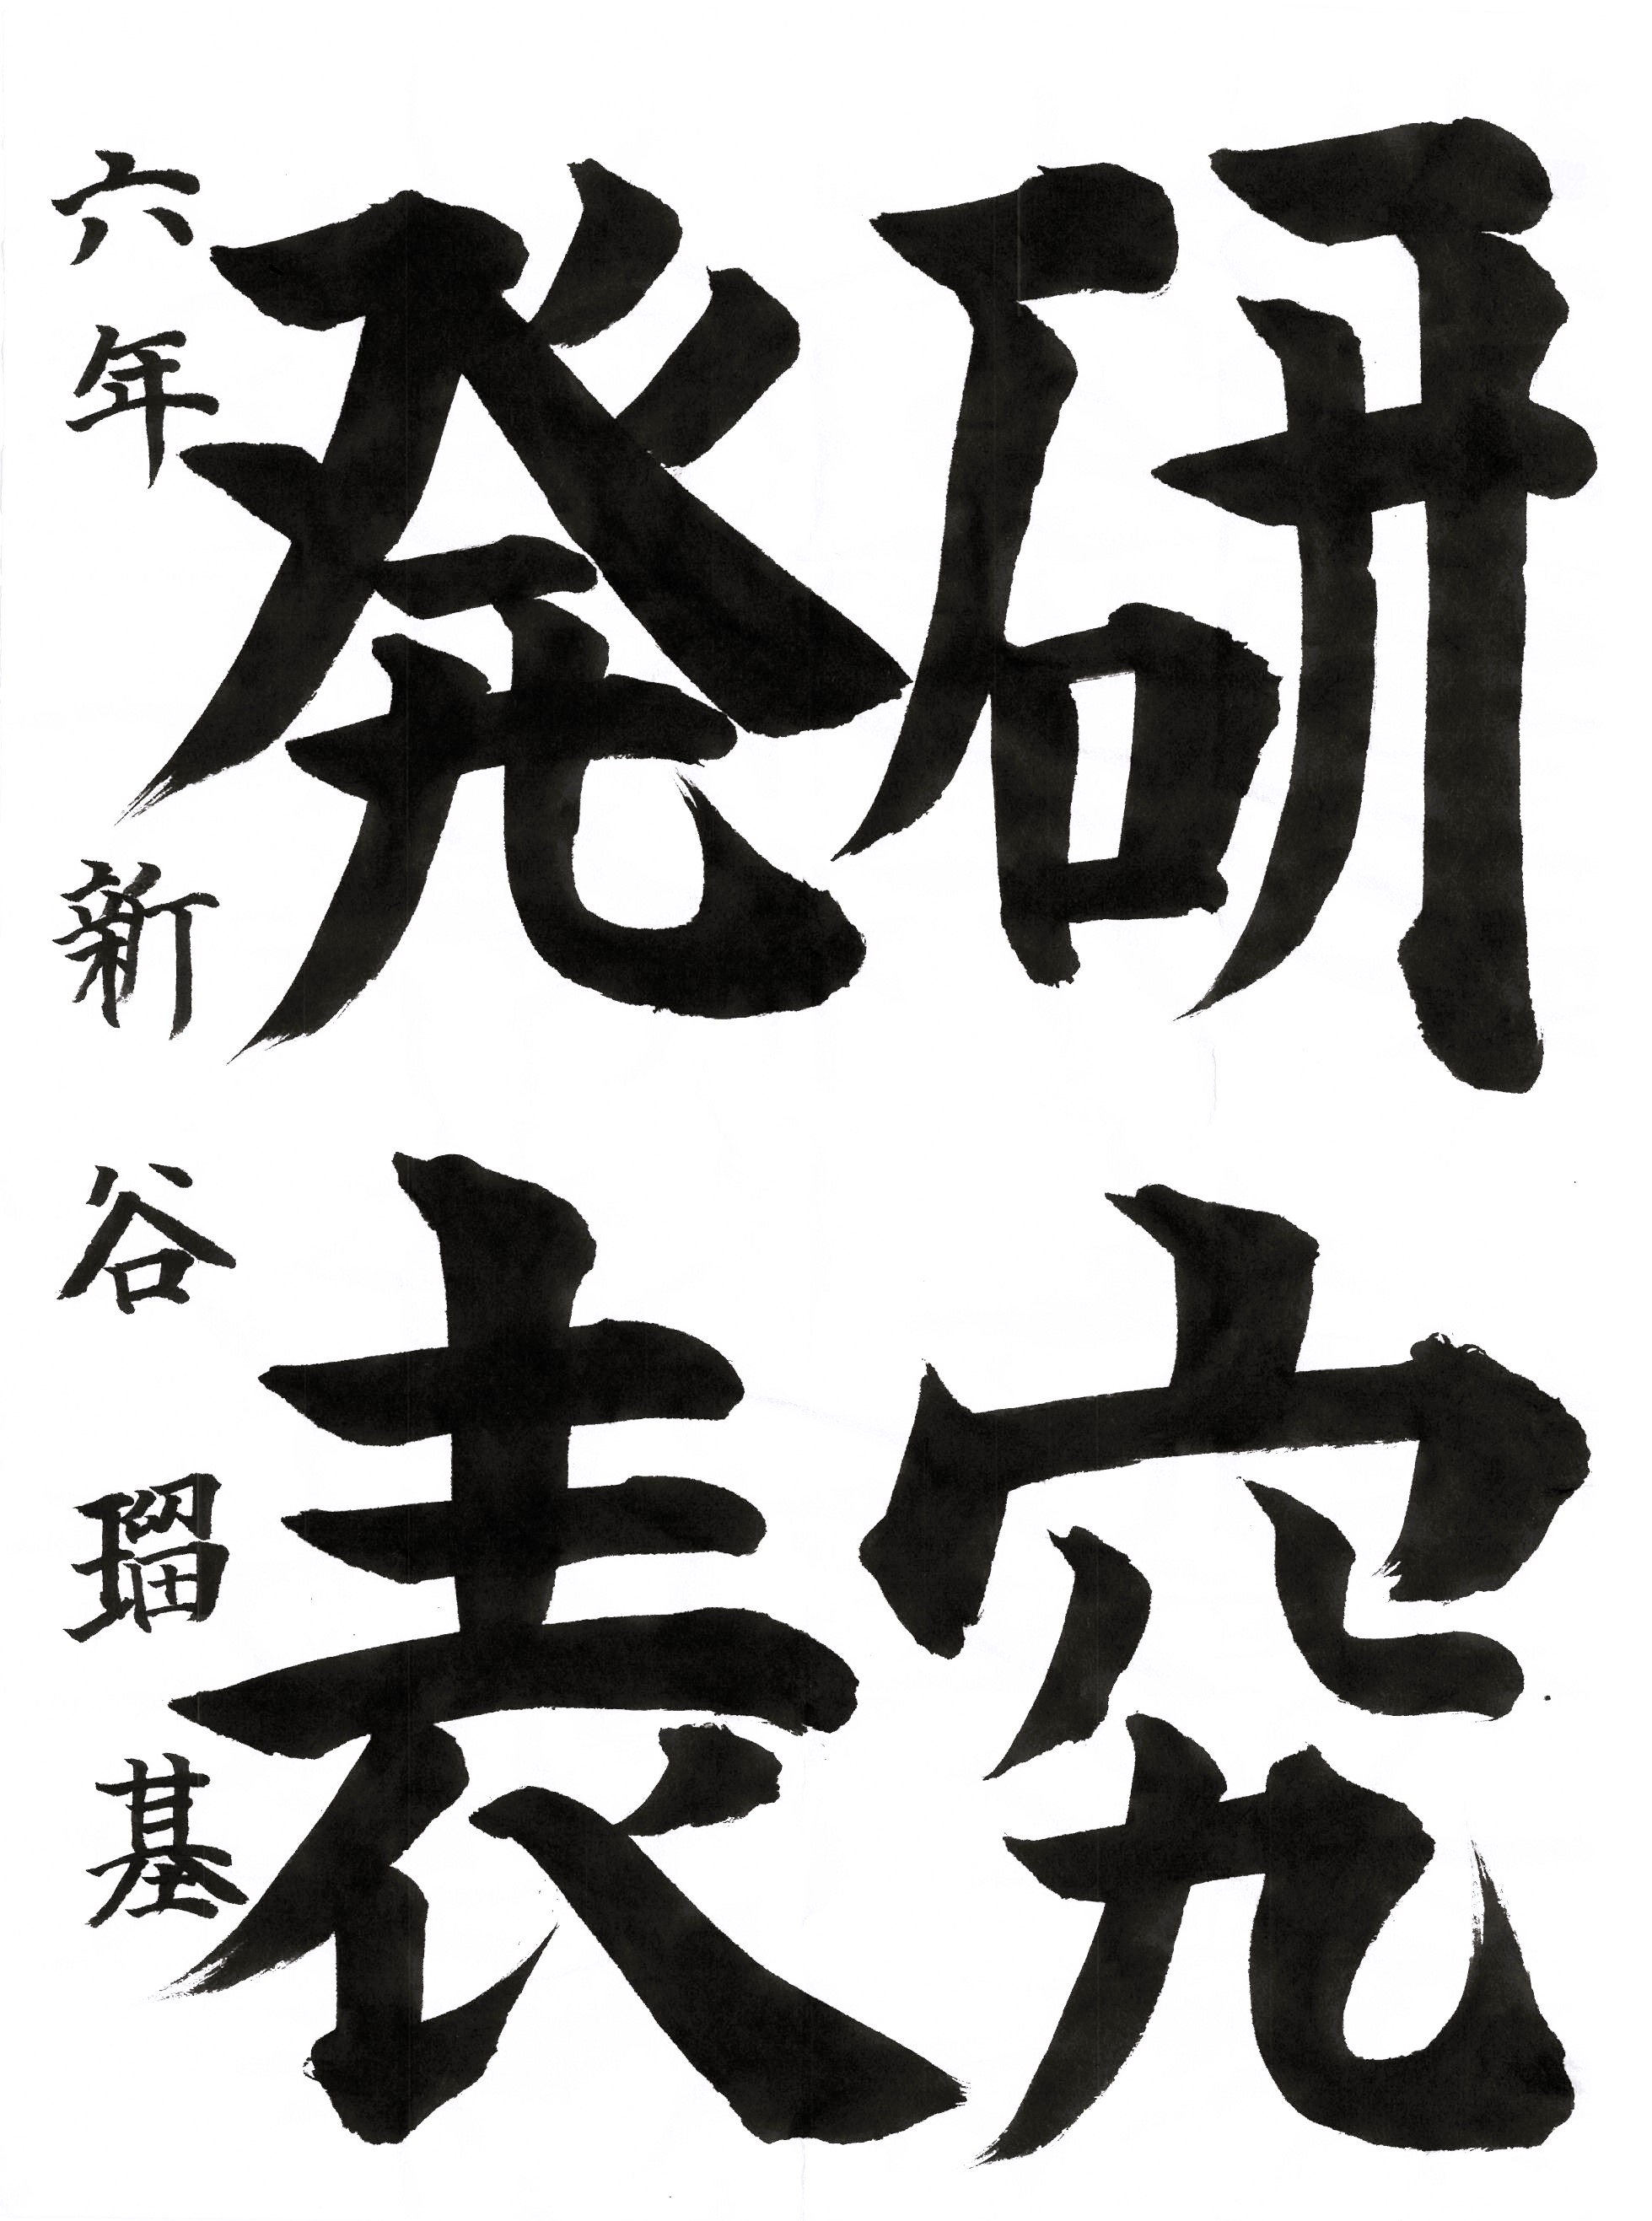 研究
発表
六年 新谷瑠基